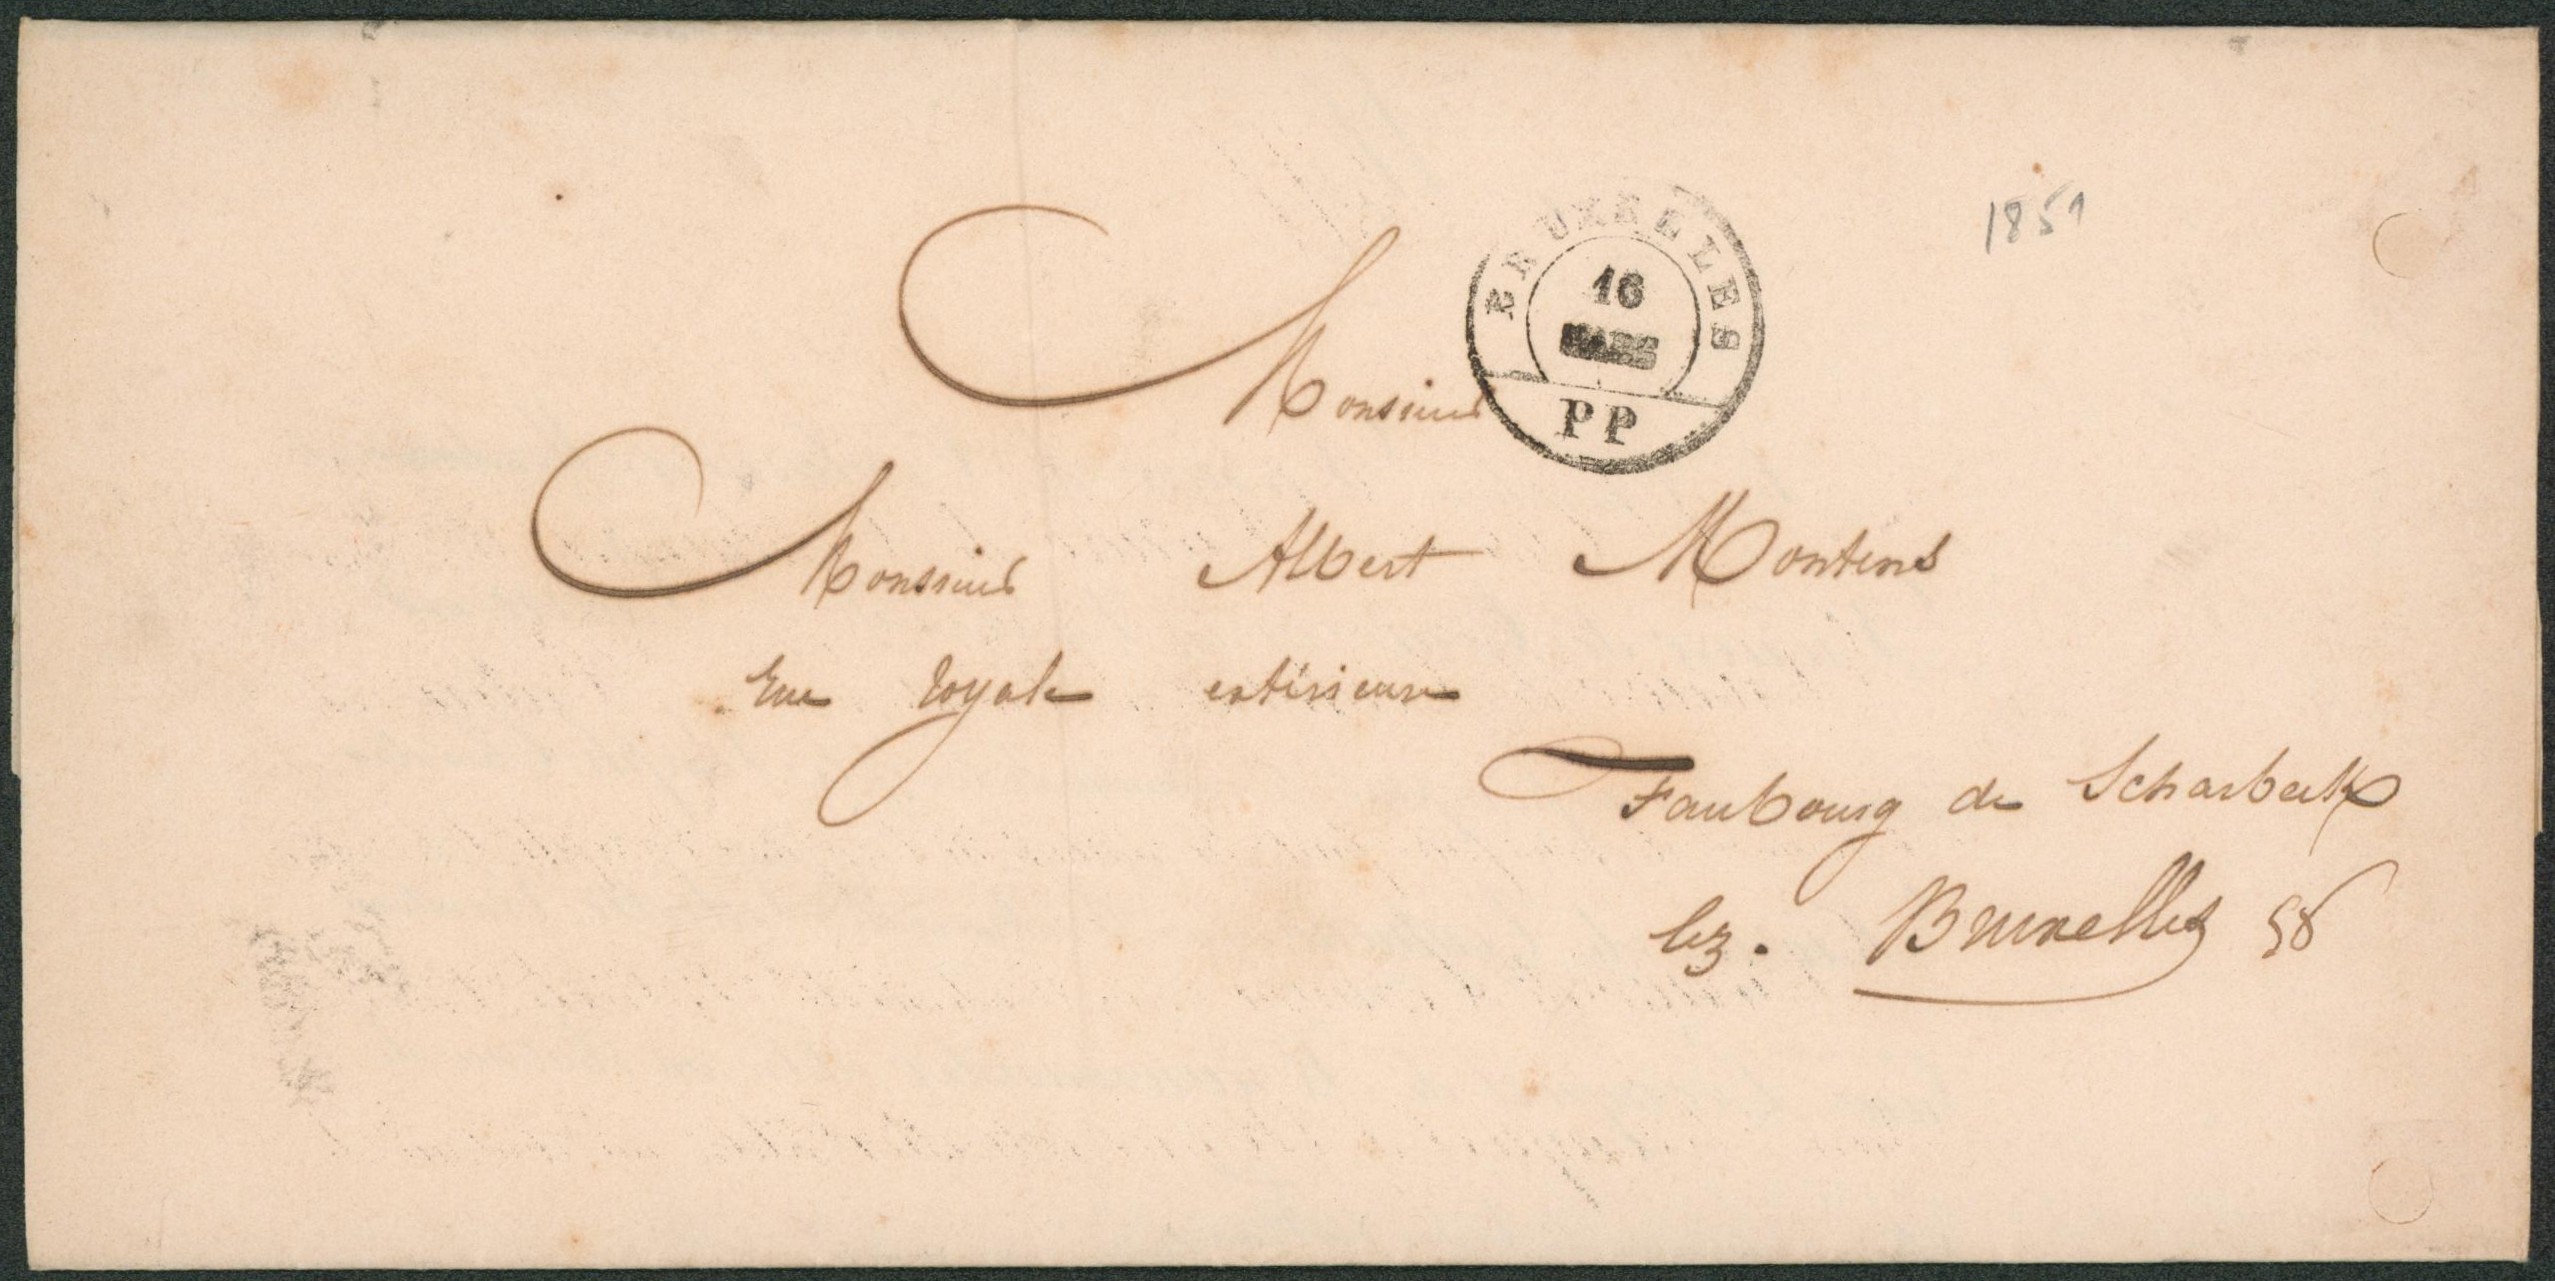 1851
BRUXELLES
16
MARS
PP
Monsieur
Monsieur Albert Montens
rue royale extérieure
Faubourg de Scharbeek
lez. Bruxelles 58